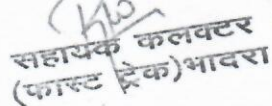 सहायक कलक्टर
(फास्ट ट्रेक)भादरा